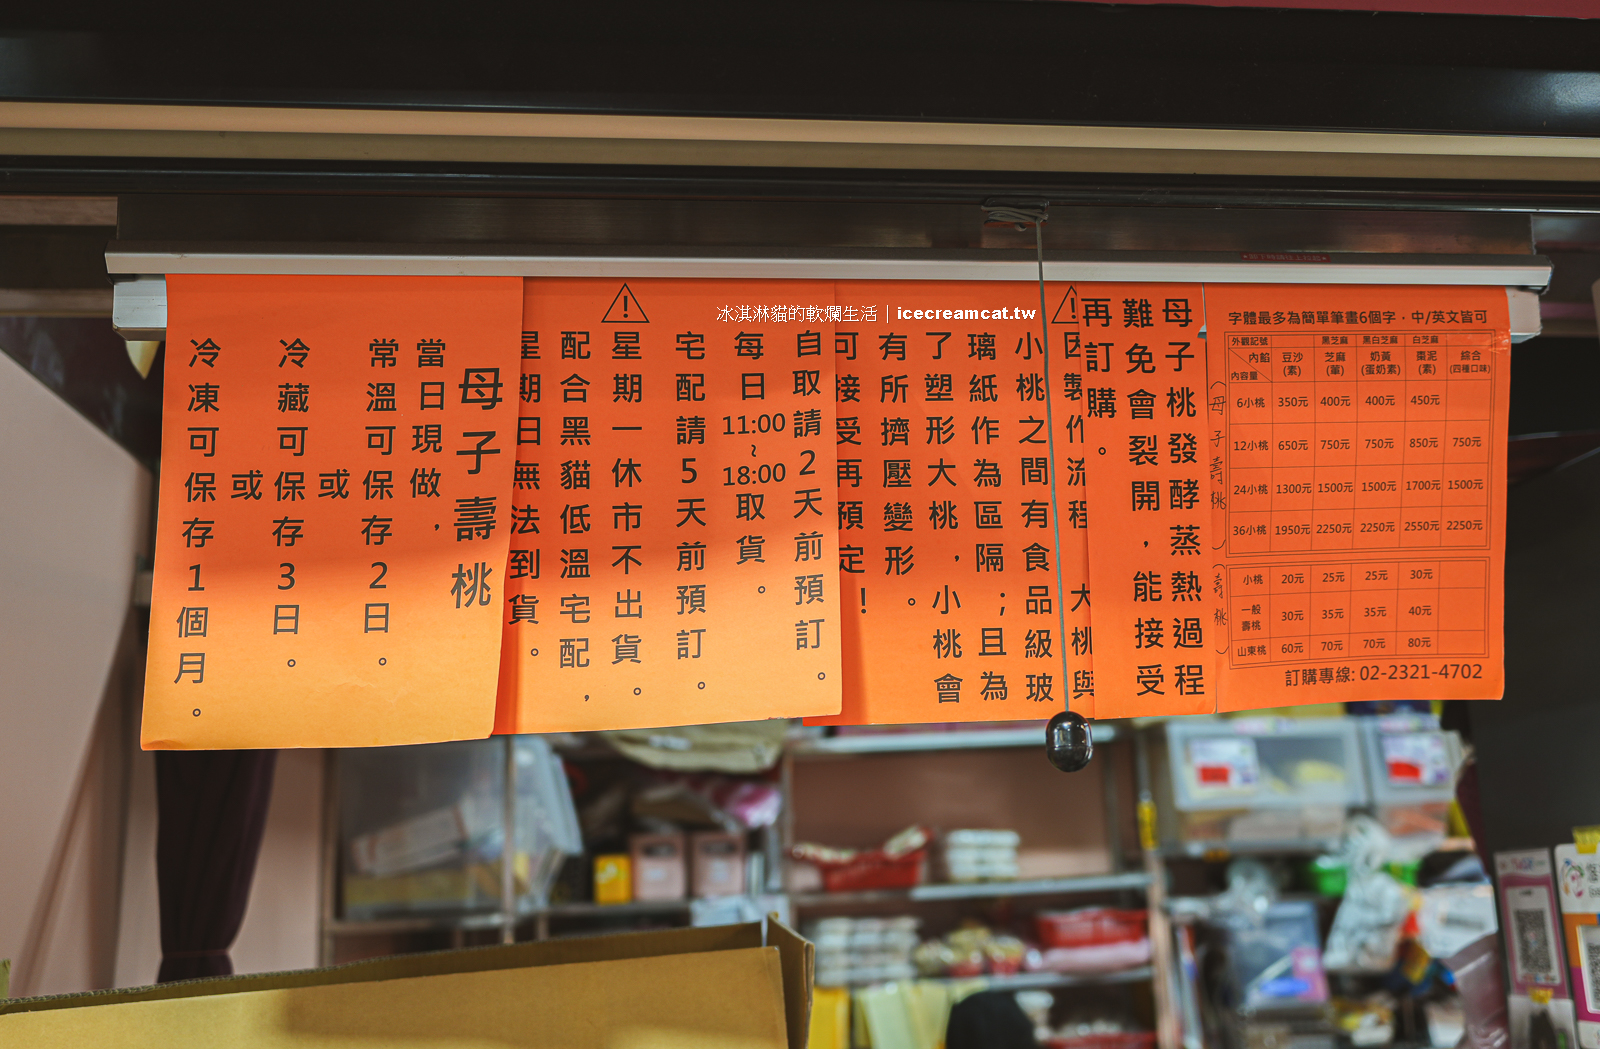 冰淇淋貓的軟爛生活｜icecreamcat.tw
字體最多為簡單筆畫6個字．中/英文皆可
外觀記號 黑芝麻 黑白芝麻 白芝麻
內餡 內容量 豆沙(素) 芝麻(葷) 奶黃(蛋奶素) 棗泥(素) 綜合(四種口味)
6小桃 350元 400元 400元 450元
12小桃 650元 750元 750元 850元 750元
24小桃 1300元 1500元 1500元 1700元 1500元
36小桃 1950元 2250元 2250元 2550元 2250元
小桃 20元 25元 25元 30元
一般壽桃 30元 35元 35元 40元
山東桃 60元 70元 70元 80元
訂購專線: 02-2321-4702
（母子壽桃）
（壽桃）
母子桃發酵蒸熱過程
難免會裂開，能接受
再訂購。
因製作流程 大桃與
小桃之間有食品級玻
璃紙作為區隔；且為
了塑形大桃，小桃會
有所擠壓變形。
可接受再預定！
自取請2天前預訂。
每日11:00~18:00取貨。
宅配請5天前預訂。
星期一休市不出貨。
配合黑貓低溫宅配，
星期日無法到貨。
母子壽桃
當日現做，
常溫可保存2日。
或
冷藏可保存3日。
或
冷凍可保存1個月。